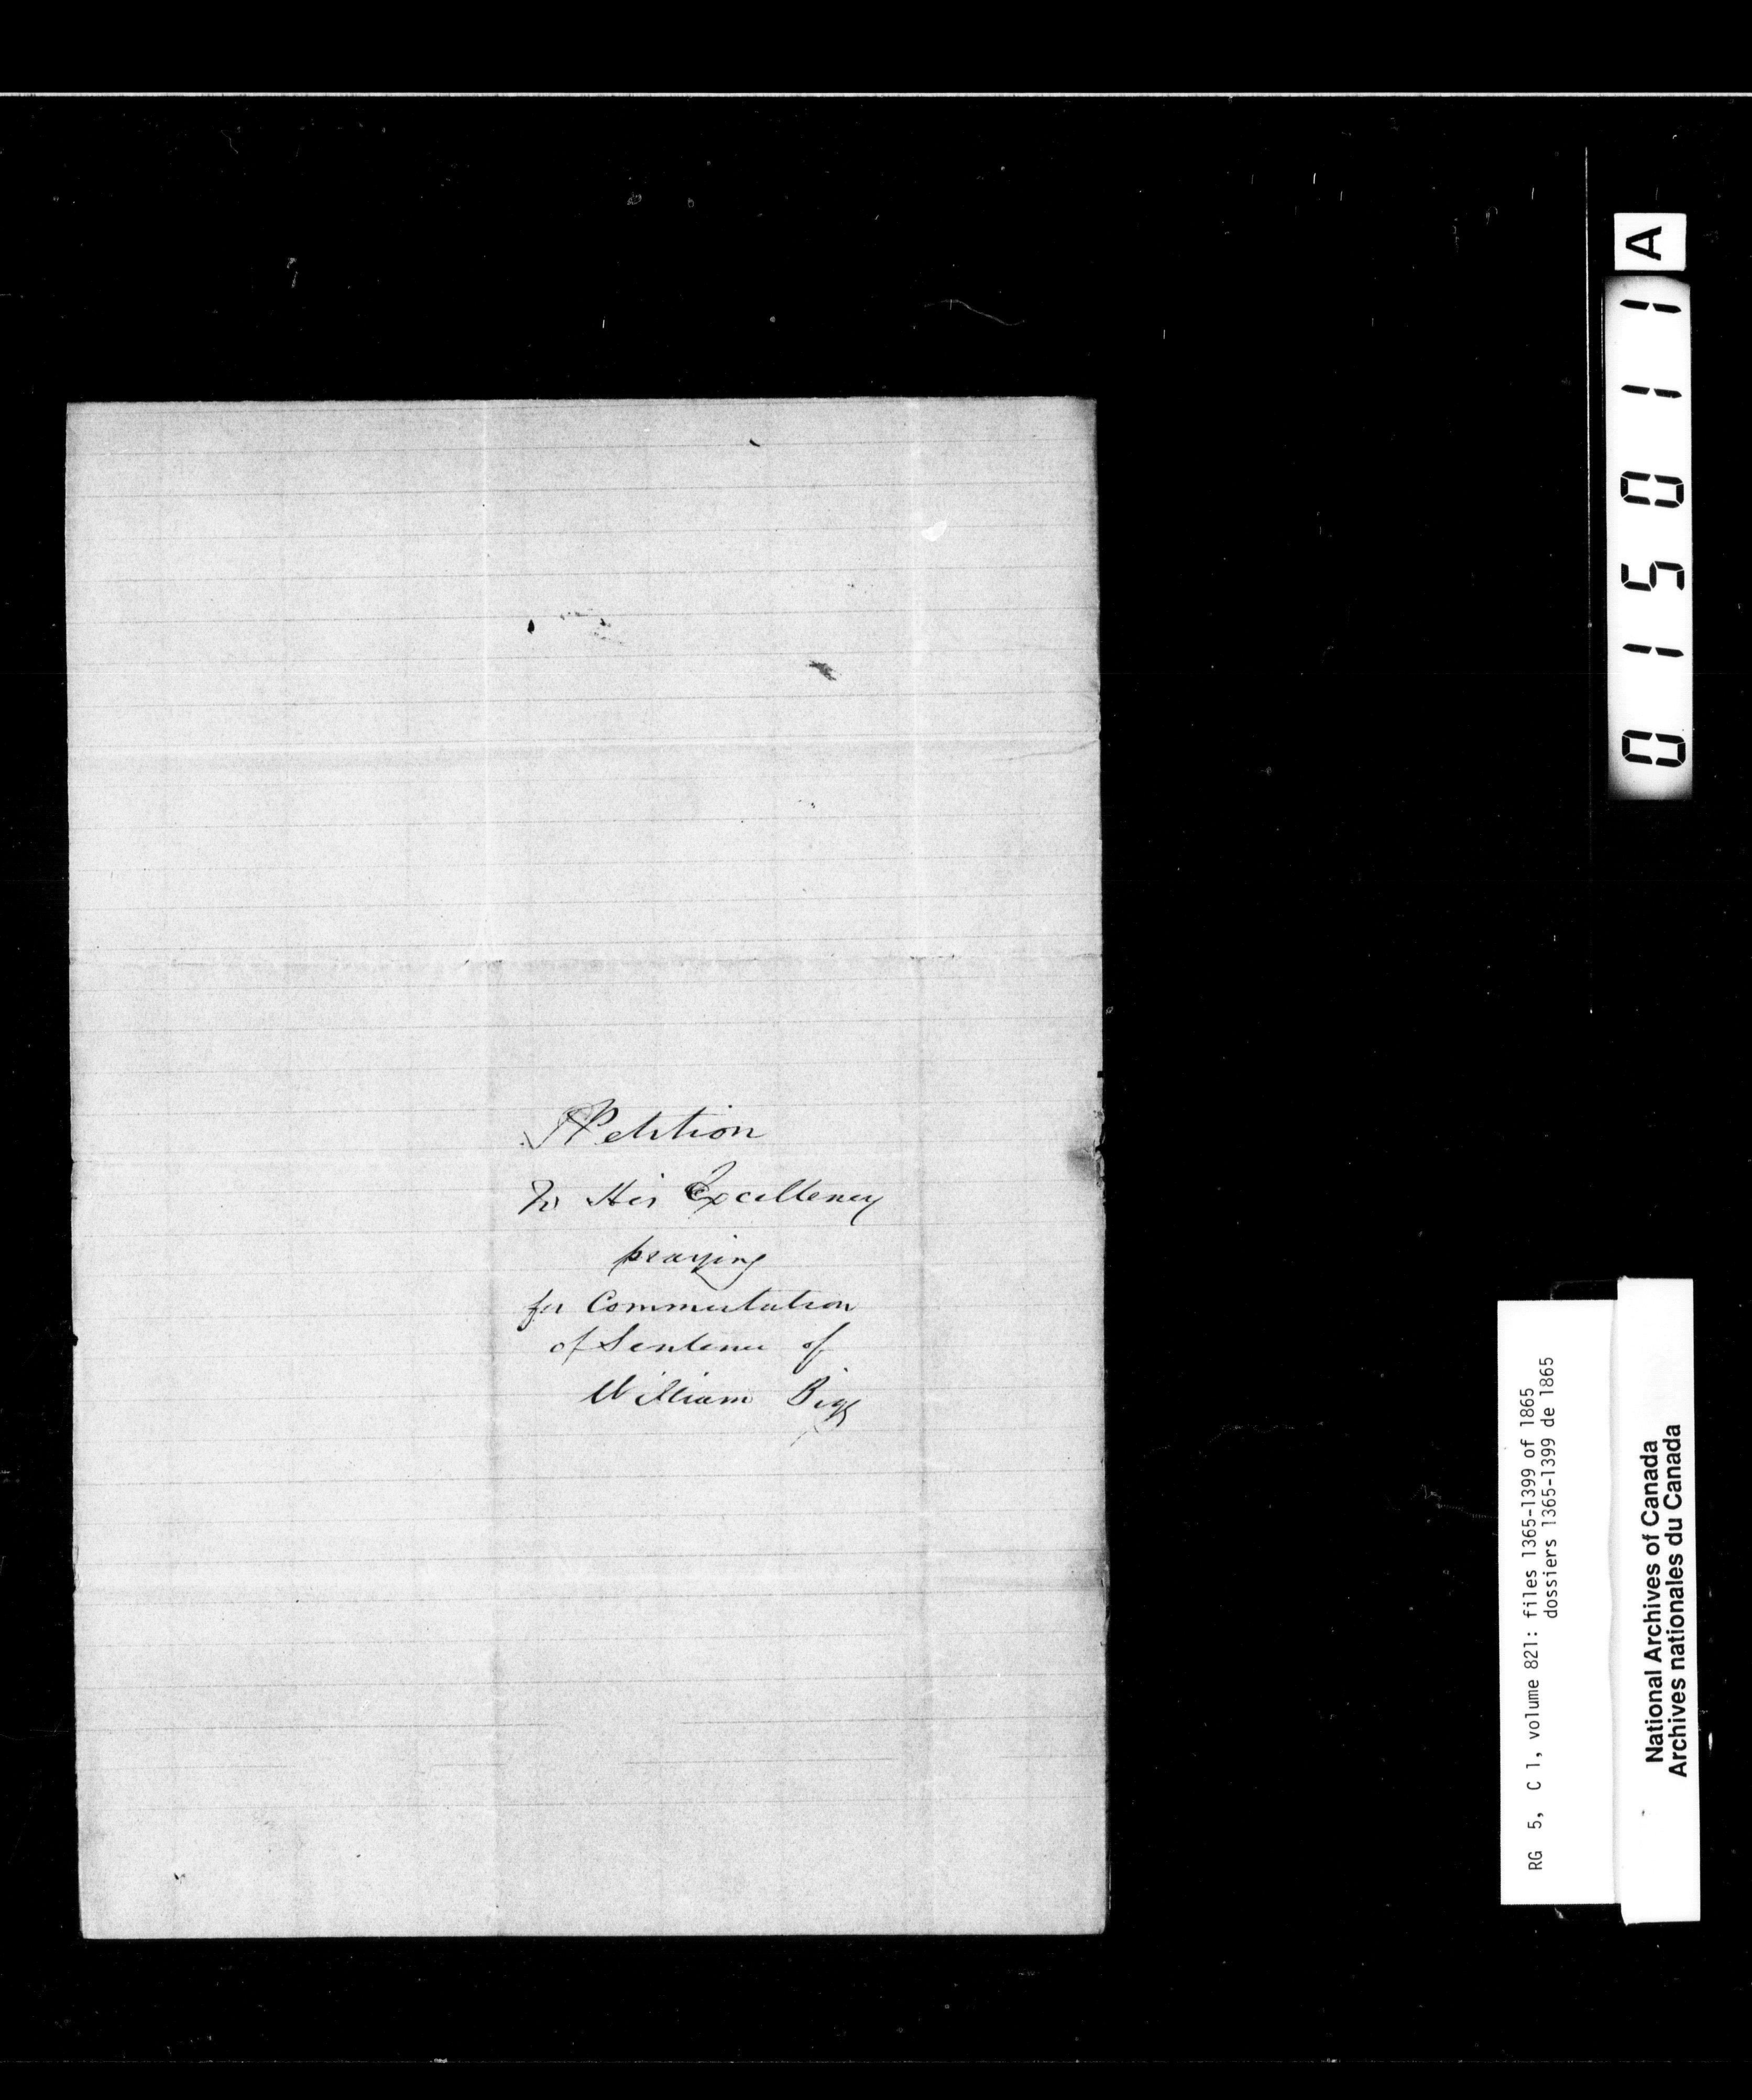 Petition
To His Excellency
praying
for Commutation
of Sentence of
William Bigg
A
015011
RG 5, C 1, volume 821: files 1365-1399 of 1865
dossiers 1365-1399 de 1865
National Archives of Canada
Archives nationales du Canada